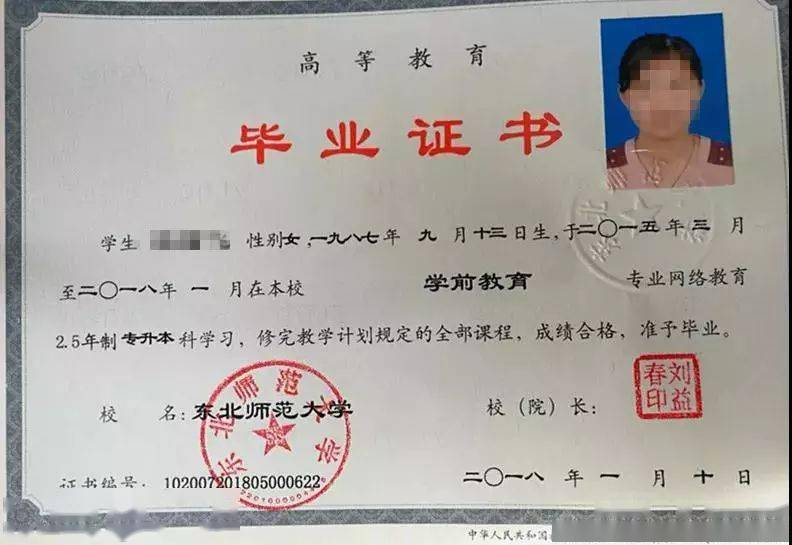 高等教育
毕业证书
学生 性别女,一九八七年 九 月十三日生,于二〇一五年三 月
至二〇一八年 一 月在本校 学前教育 专业网络教育
2.5年制 专升本 科学习，修完教学计划规定的全部课程，成绩合格，准予毕业。
校 名：东北师范大学 校（院）长：
刘益春印
东北师范大学
证书编号：102007201805000622 二〇一八 年 一 月 十 日
中华人民共和国